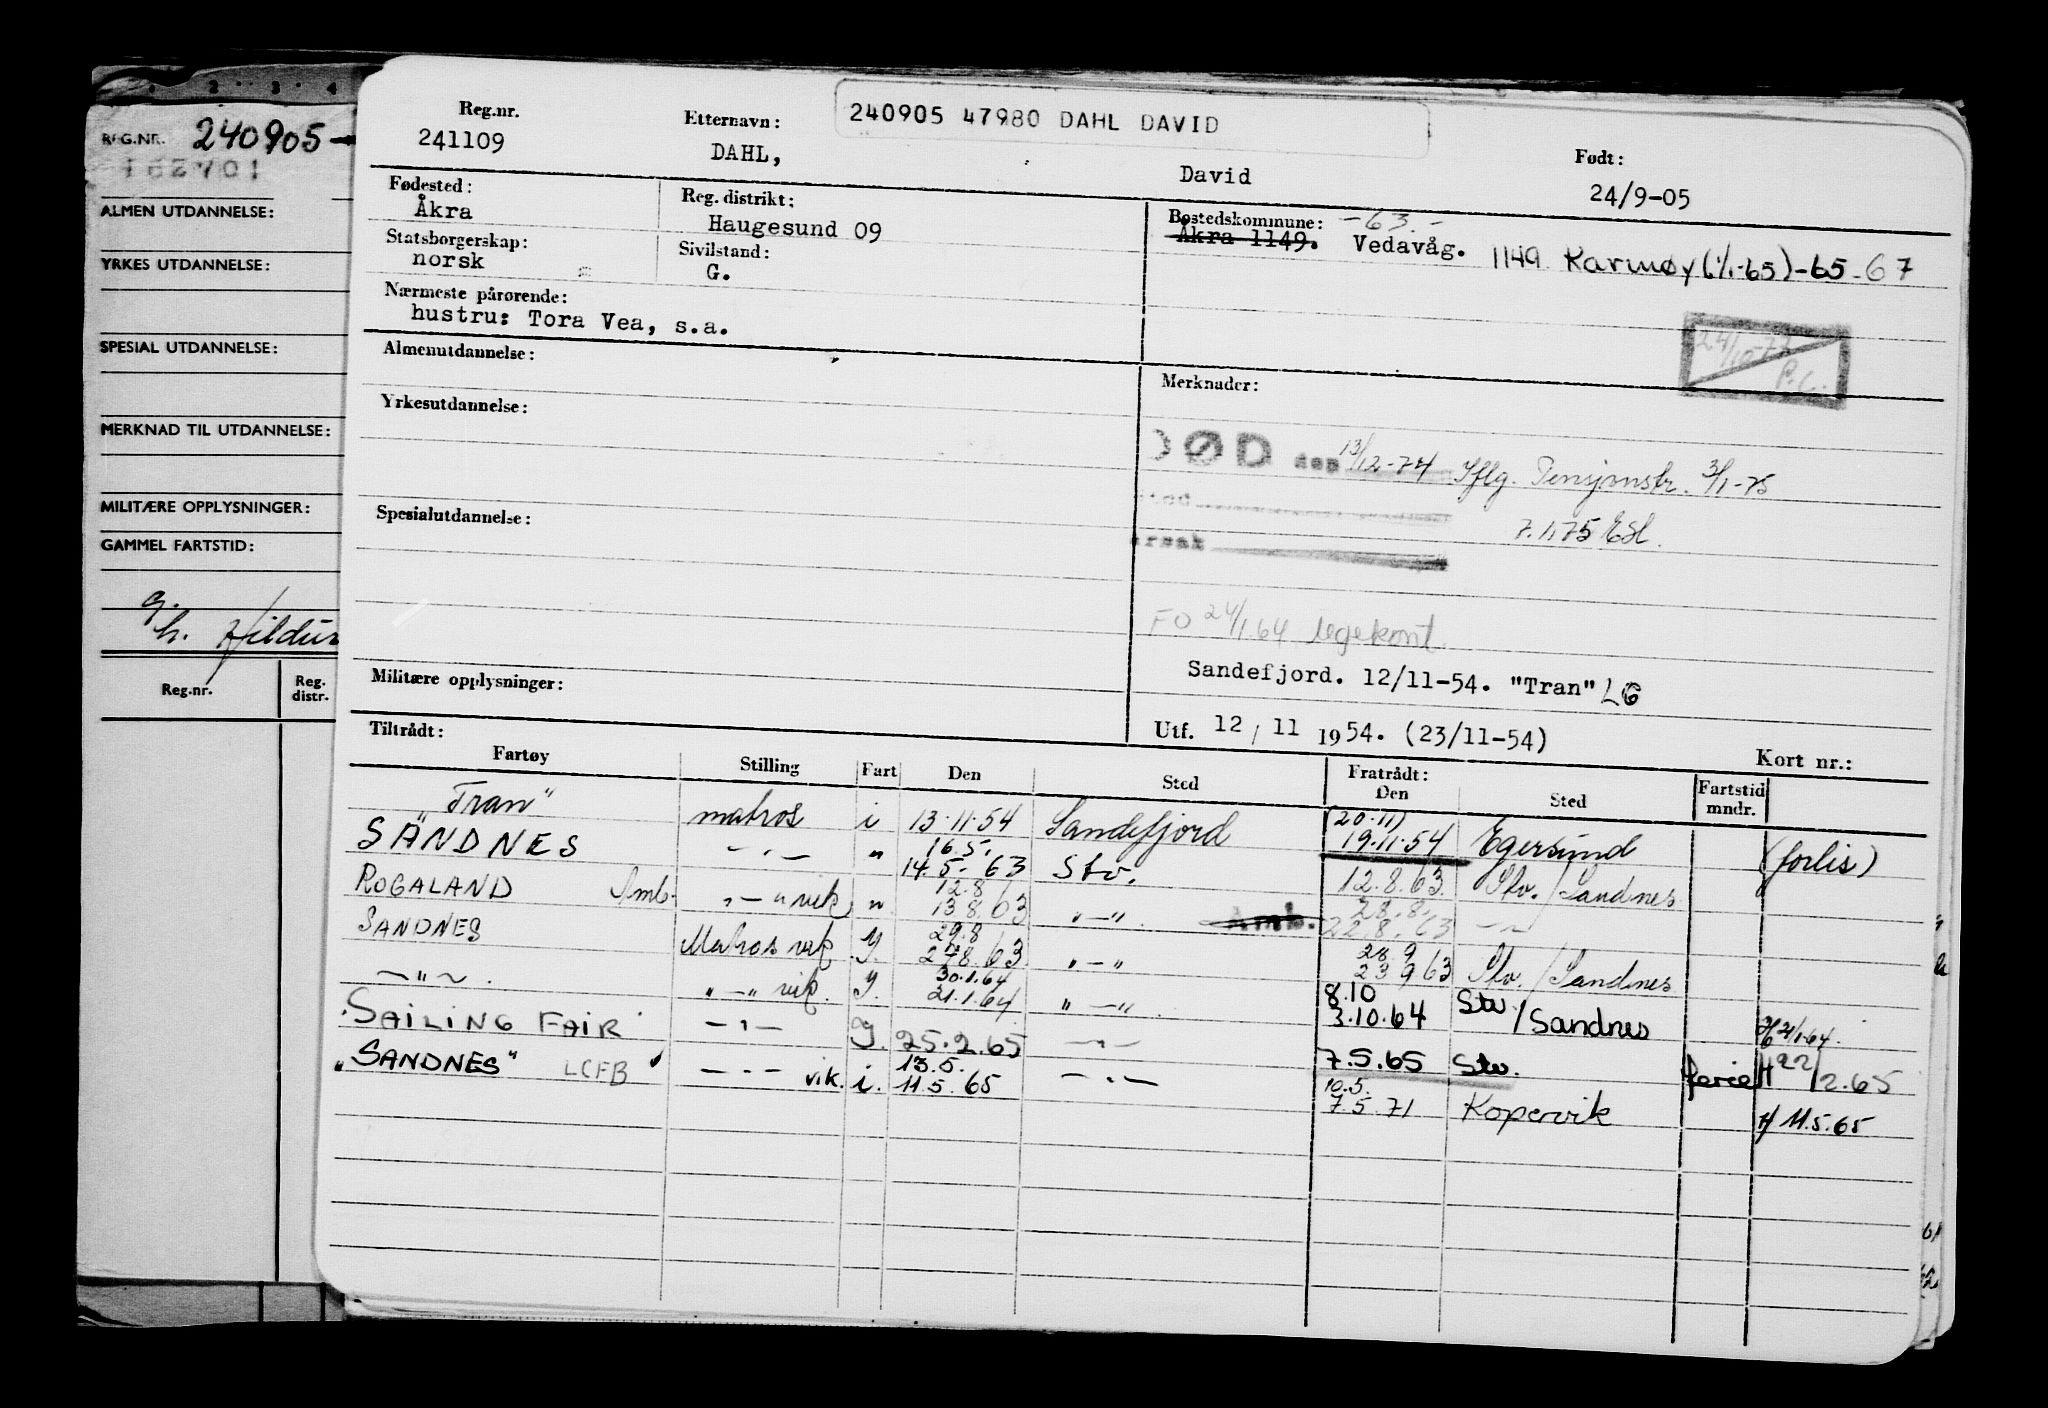 REG.NR. 240905-
ALMEN UTDANNELSE:
YRKES UTDANNELSE:
SPESIAL UTDANNELSE:
MERKNAD TIL UTDANNELSE:
MILITÆRE OPPLYSNINGER:
GAMMEL FARTSTID:
g.
h. Hildur
Reg.nr. Reg. distr.
Reg.nr. Etternavn: 240905 47980 DAHL DAVID Født:
241109 DAHL, David 24/9-05
Fødested: Reg. distrikt: Bostedskommune: -63.-
Åkra Haugesund 09 Åkra 1149. Vedavåg. 1149 Karmøy (1/1-65)-65-67
Statsborgerskap: Sivilstand:
norsk G.
Nærmeste pårørende:
hustru: Tora Vea, s.a.
24/10-72 P.C.
Almenutdannelse: Merknader:
Yrkesutdannelse:
DØD den 13/12-74 Iflg. Pensjonstr. 3/1-75
sted
7.1.75
årsak
Spesialutdannelse:
FO 24/1.64 legekont.
Sandefjord. 12/11-54. "Tran" LG
Militære opplysninger:
Utf. 12 / 11 1954. (23/11-54)
Tiltrådt: Kort nr.:
Fartøy Stilling Fart Den Sted Fratrådt: Den Sted Fartstid mndr.
"Tran" matros i 13.11.54 Sandefjord (20.11) 19.11.54 Egersund (forlis)
SANDNES -"- " 16.5. 14.5.63 Stv. 12.8.63 Stv./Sandnes
ROGALAND Amb. "-" vik " 12.8 13.8.63 "-" Amb. 28.8. 22.8.63 -"-
SANDNES Matros vik y. 29.8 27.8.63 "-" 28.9 23.9.63 Stv./Sandnes
-"-. "-" vik. y. 30.1.64 21.1.64 "-" 8.10 3.10.64 Stv/Sandnes 21/1.64.
"SAILING FAIR" -"- y. 25.2.65 -"- 7.5.65 Stv. ferie H 22/2.65
"SANDNES" LCFB -"- vik. i. 13.5. 11.5.65 -"- 10.5. 7.5.71 Kopervik H 11.5.65